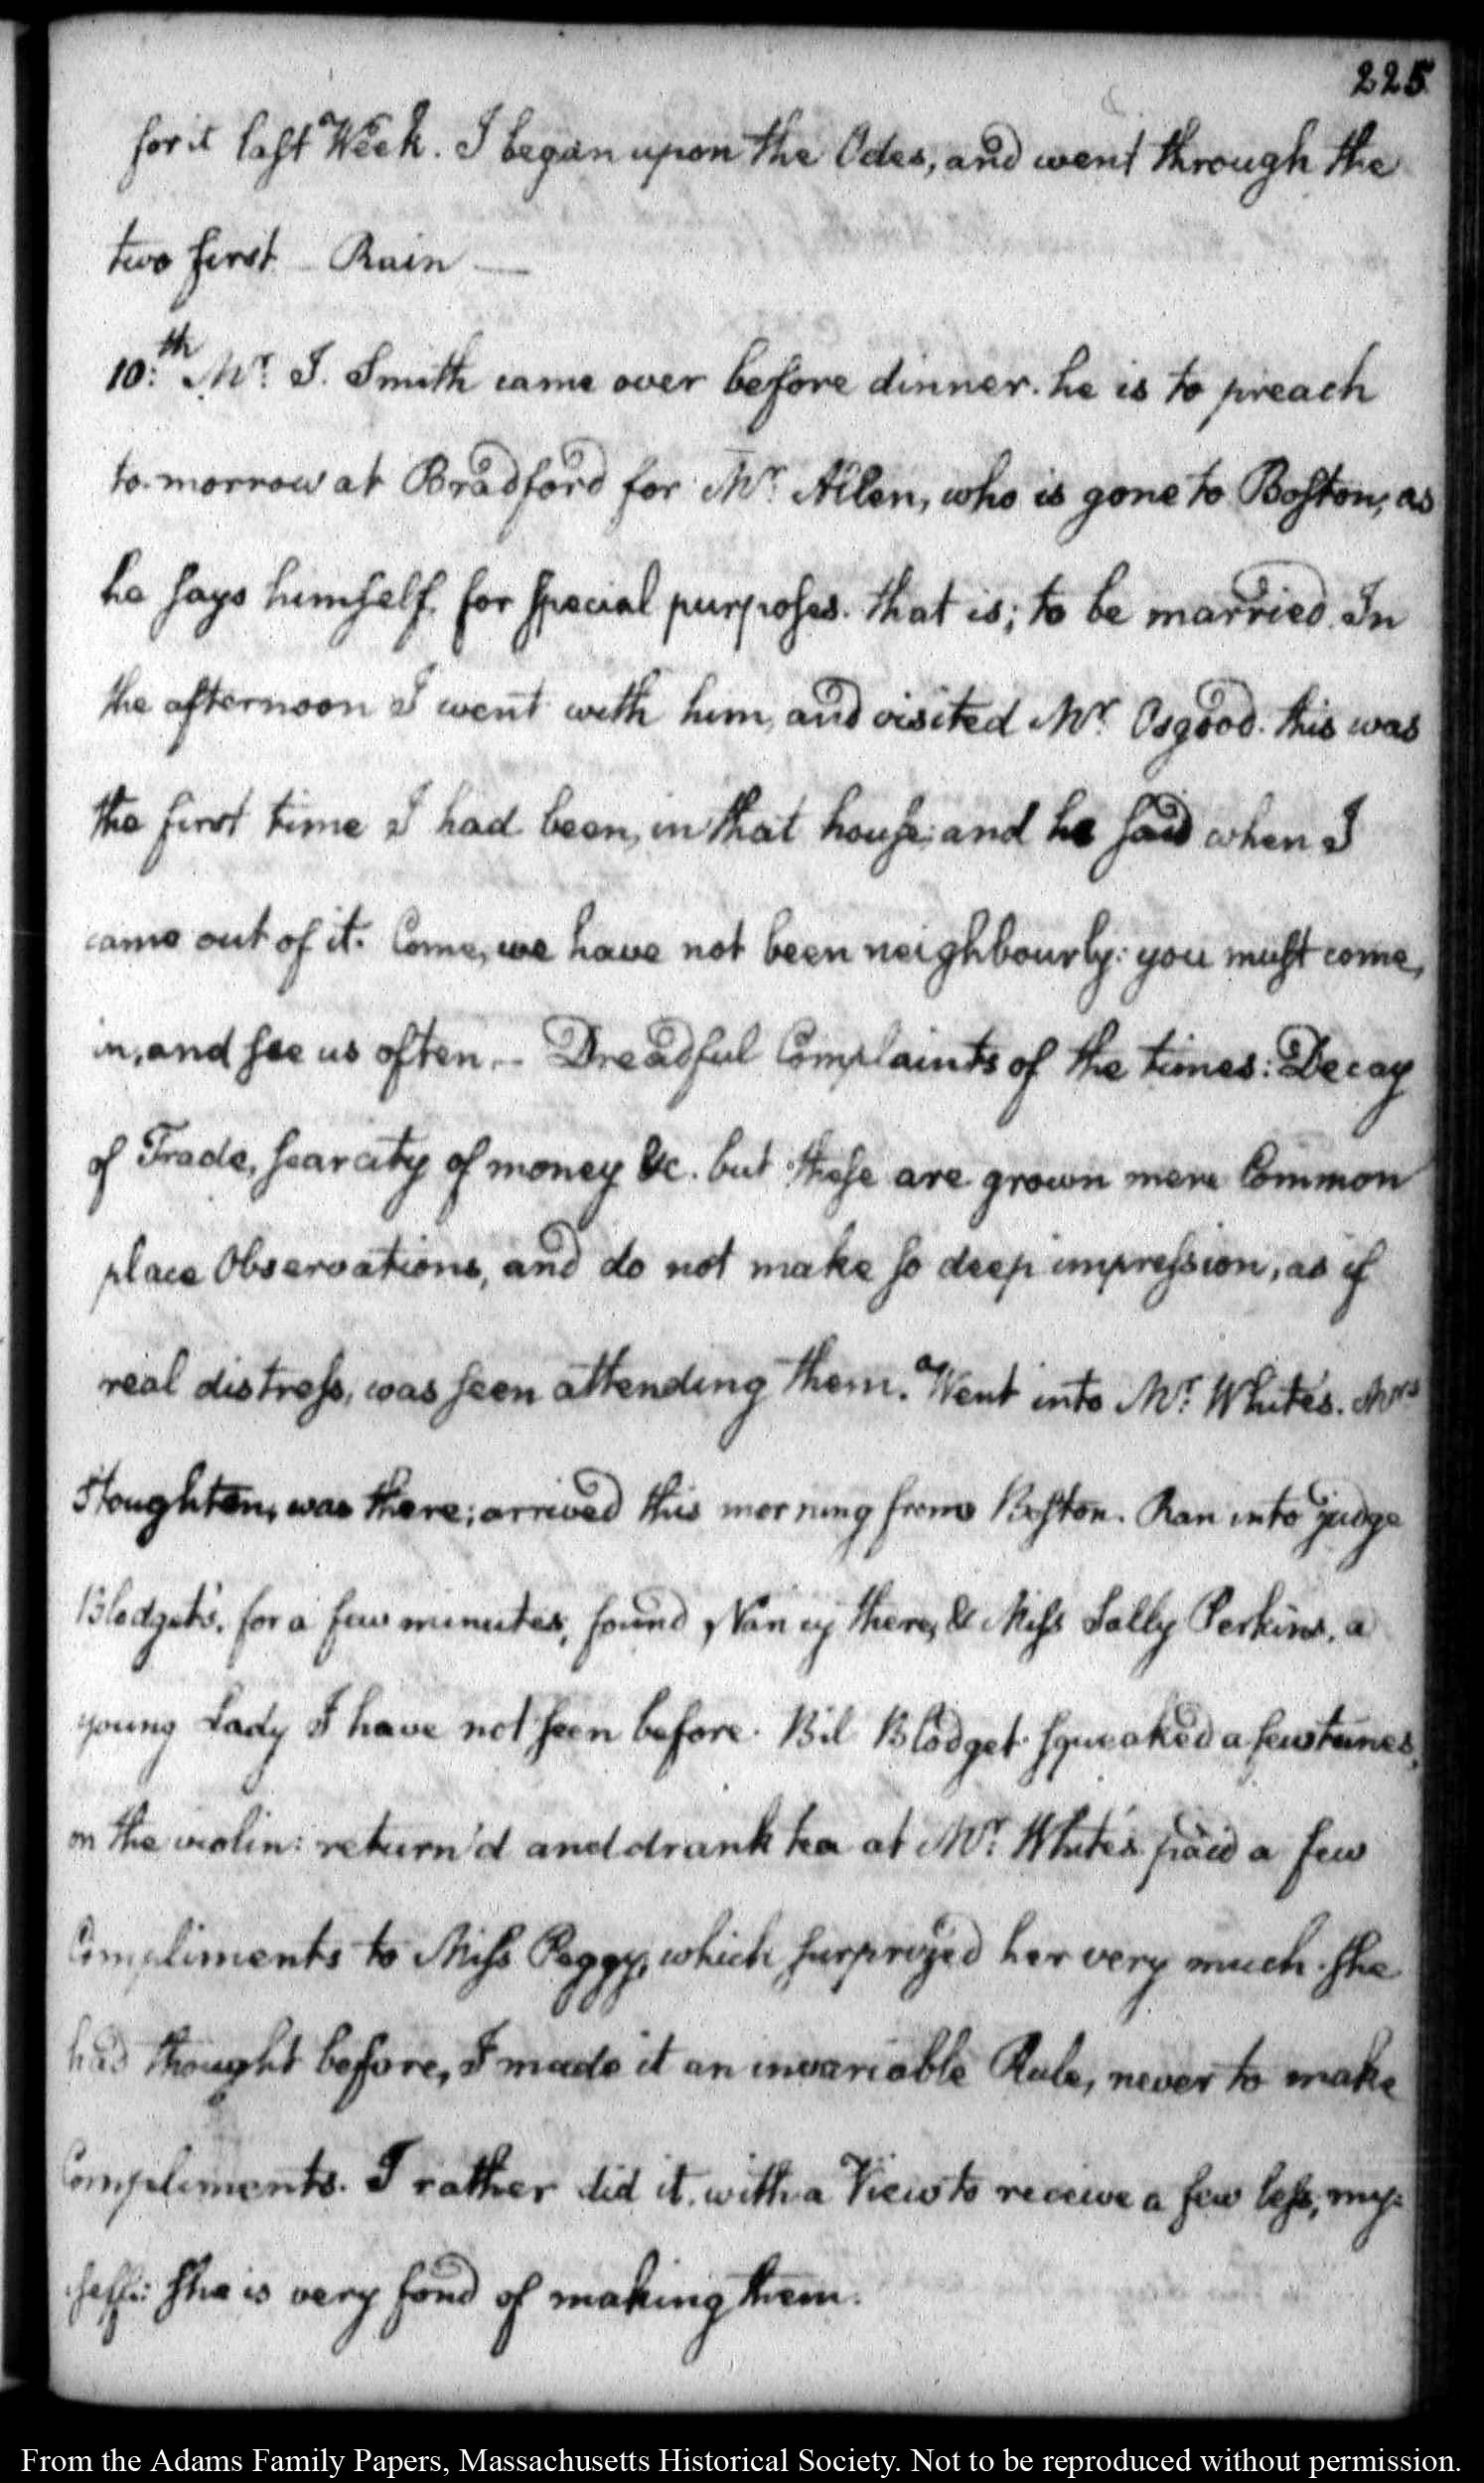 225
for it last Week. I began upon the Odes, and went through the
two first — Rain —
10:th Mr. I. Smith came over before dinner. he is to preach
to-morrow at Bradford for Mr. Allen, who is gone to Boston, as
he says himself, for special purposes. that is; to be married. In
the afternoon I went with him, and visited Mr. Osgood. this was
the first time I had been, in that house; and he said when I
came out of it. Come, we have not been neighbourly: you must come,
in, and see us often. — Dreadful Complaints of the times: Decay
of Trade, scarcity of money &c. but these are grown mere Common
place Observations, and do not make so deep impression, as if
real distress, was seen attending them. Went into Mr. White's. Mrs
Stoughton, was there; arrived this morning from Boston. Ran into judge
Blodget's, for a few minutes, found Nancy there, & Miss Sally Perkins, a
young Lady I have not seen before. Bil Blodget squeaked a few tunes,
on the violin: return'd and drank tea at Mr. White's. paid a few
Compliments to Miss Peggy, which surprized her very much. she
had thought before, I made it an invariable Rule, never to make
Compliments. I rather did it, with a View to receive a few less, my=
self: she is very fond of making them.
From the Adams Family Papers, Massachusetts Historical Society. Not to be reproduced without permission.